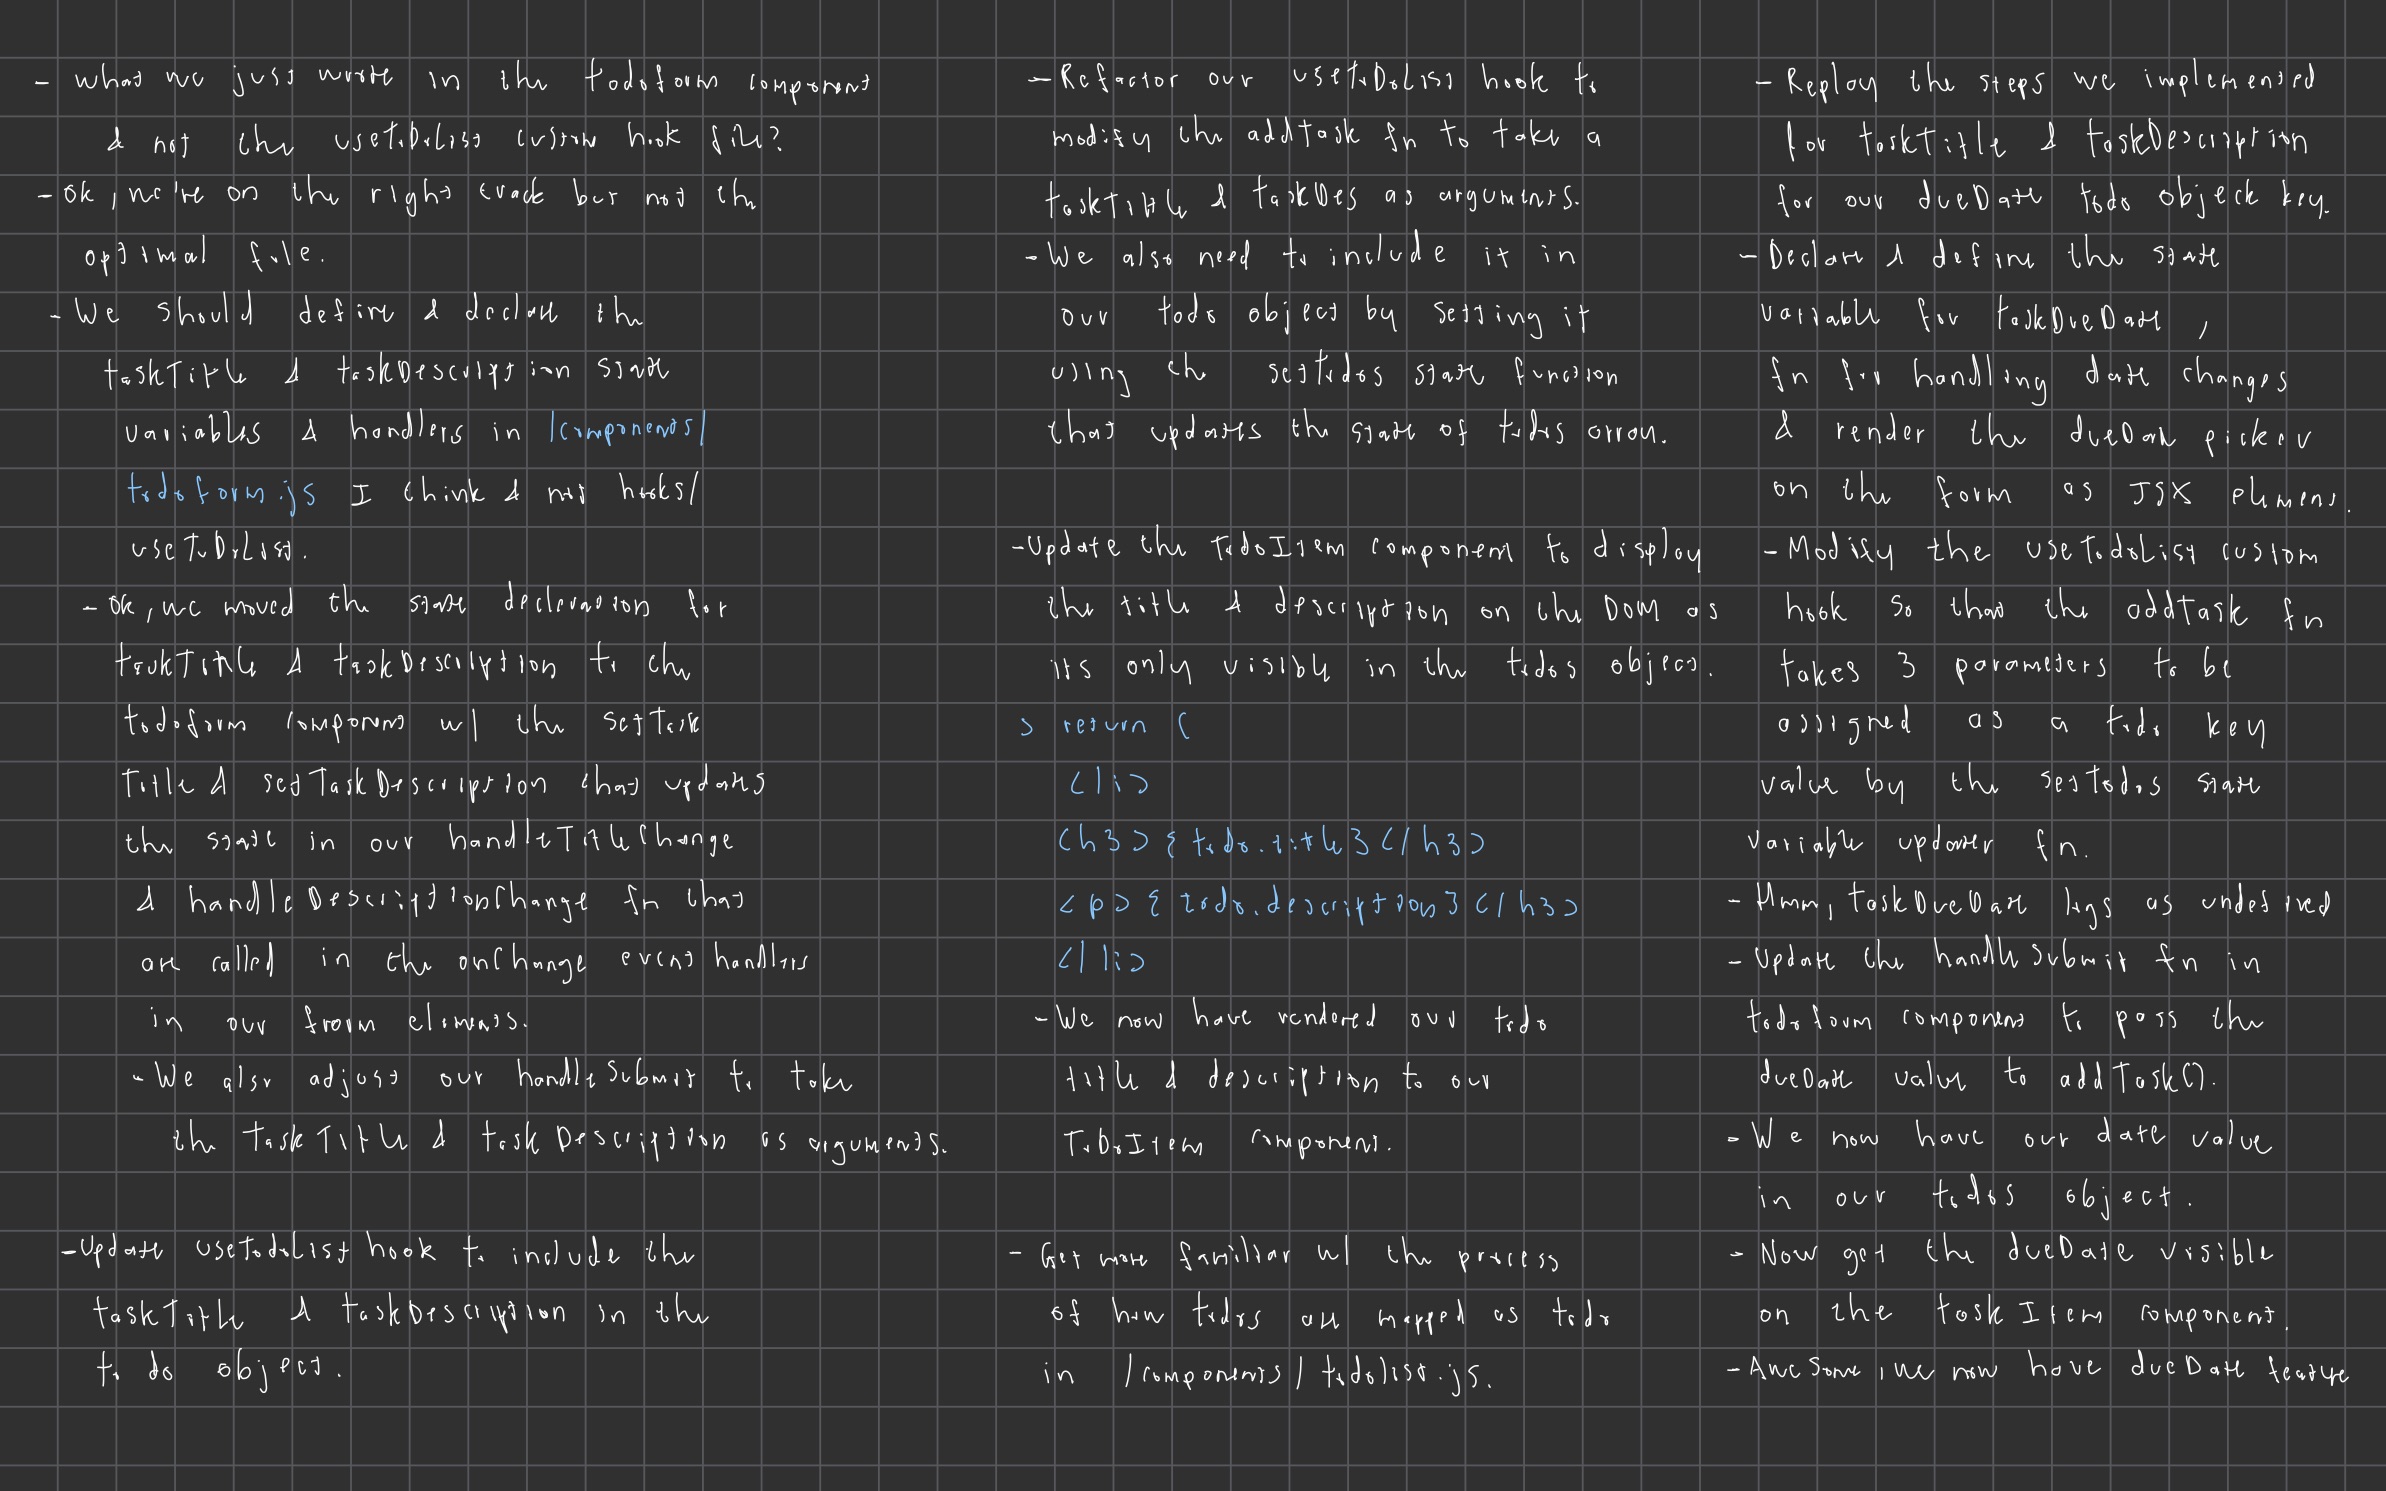 - what we just wrote in the todoform component
& not the useToDoList custom hook file?
- ok, we're on the right track but not the
optimal file.
- We should define & declare the
taskTitle & taskDescription state
variables & handlers in /components/
todoform.js I think & not hooks/
useToDoList.
- ok, we moved the state decleration for
taskTitle & taskDescription to the
todoform component w/ the setTask
Title & setTaskDescription that updates
the state in our handleTitleChange
& handleDescriptionChange fn that
are called in the onChange event handlers
in our from elements.
- We also adjust our handleSubmit to take
the taskTitle & taskDescription as arguments.
- Update useTodoList hook to include the
taskTitle & taskDescription in the
to do object.
- Refactor our useToDoList hook to
modify the addTask fn to take a
taskTitle & taskDes as arguments.
- We also need to include it in
our todo object by setting it
using the setTodos state function
that updates the state of todos array.
- Update the TodoItem component to display
the title & description on the DOM as
its only visible in the todos object.
> return (
<li>
<h3>{todo.title}</h3>
<p>{todo.description}</h3>
</li>
- We now have rendered our todo
title & description to our
ToDoItem component.
- Get more familiar w/ the process
of how todos are mapped as todo
in /components/todolist.js.
- Replay the steps we implemented
for taskTitle & taskDescription
for our dueDate todo objeck key.
- Declare & define the state
variable for taskDueDate,
fn for handling date changes
& render the dueDate picker
on the form as JSX element.
- Modify the useTodoList custom
hook so that the addTask fn
takes 3 parameters to be
assigned as a todo key
value by the setTodos state
variable updater fn.
- Hmm, taskDueDate logs as undefined
- Update the handleSubmit fn in
todoform component to pass the
dueDate value to addTask().
- We now have our date value
in our todos object.
- Now get the dueDate visible
on the taskItem component.
- Awesome, we now have dueDate feature